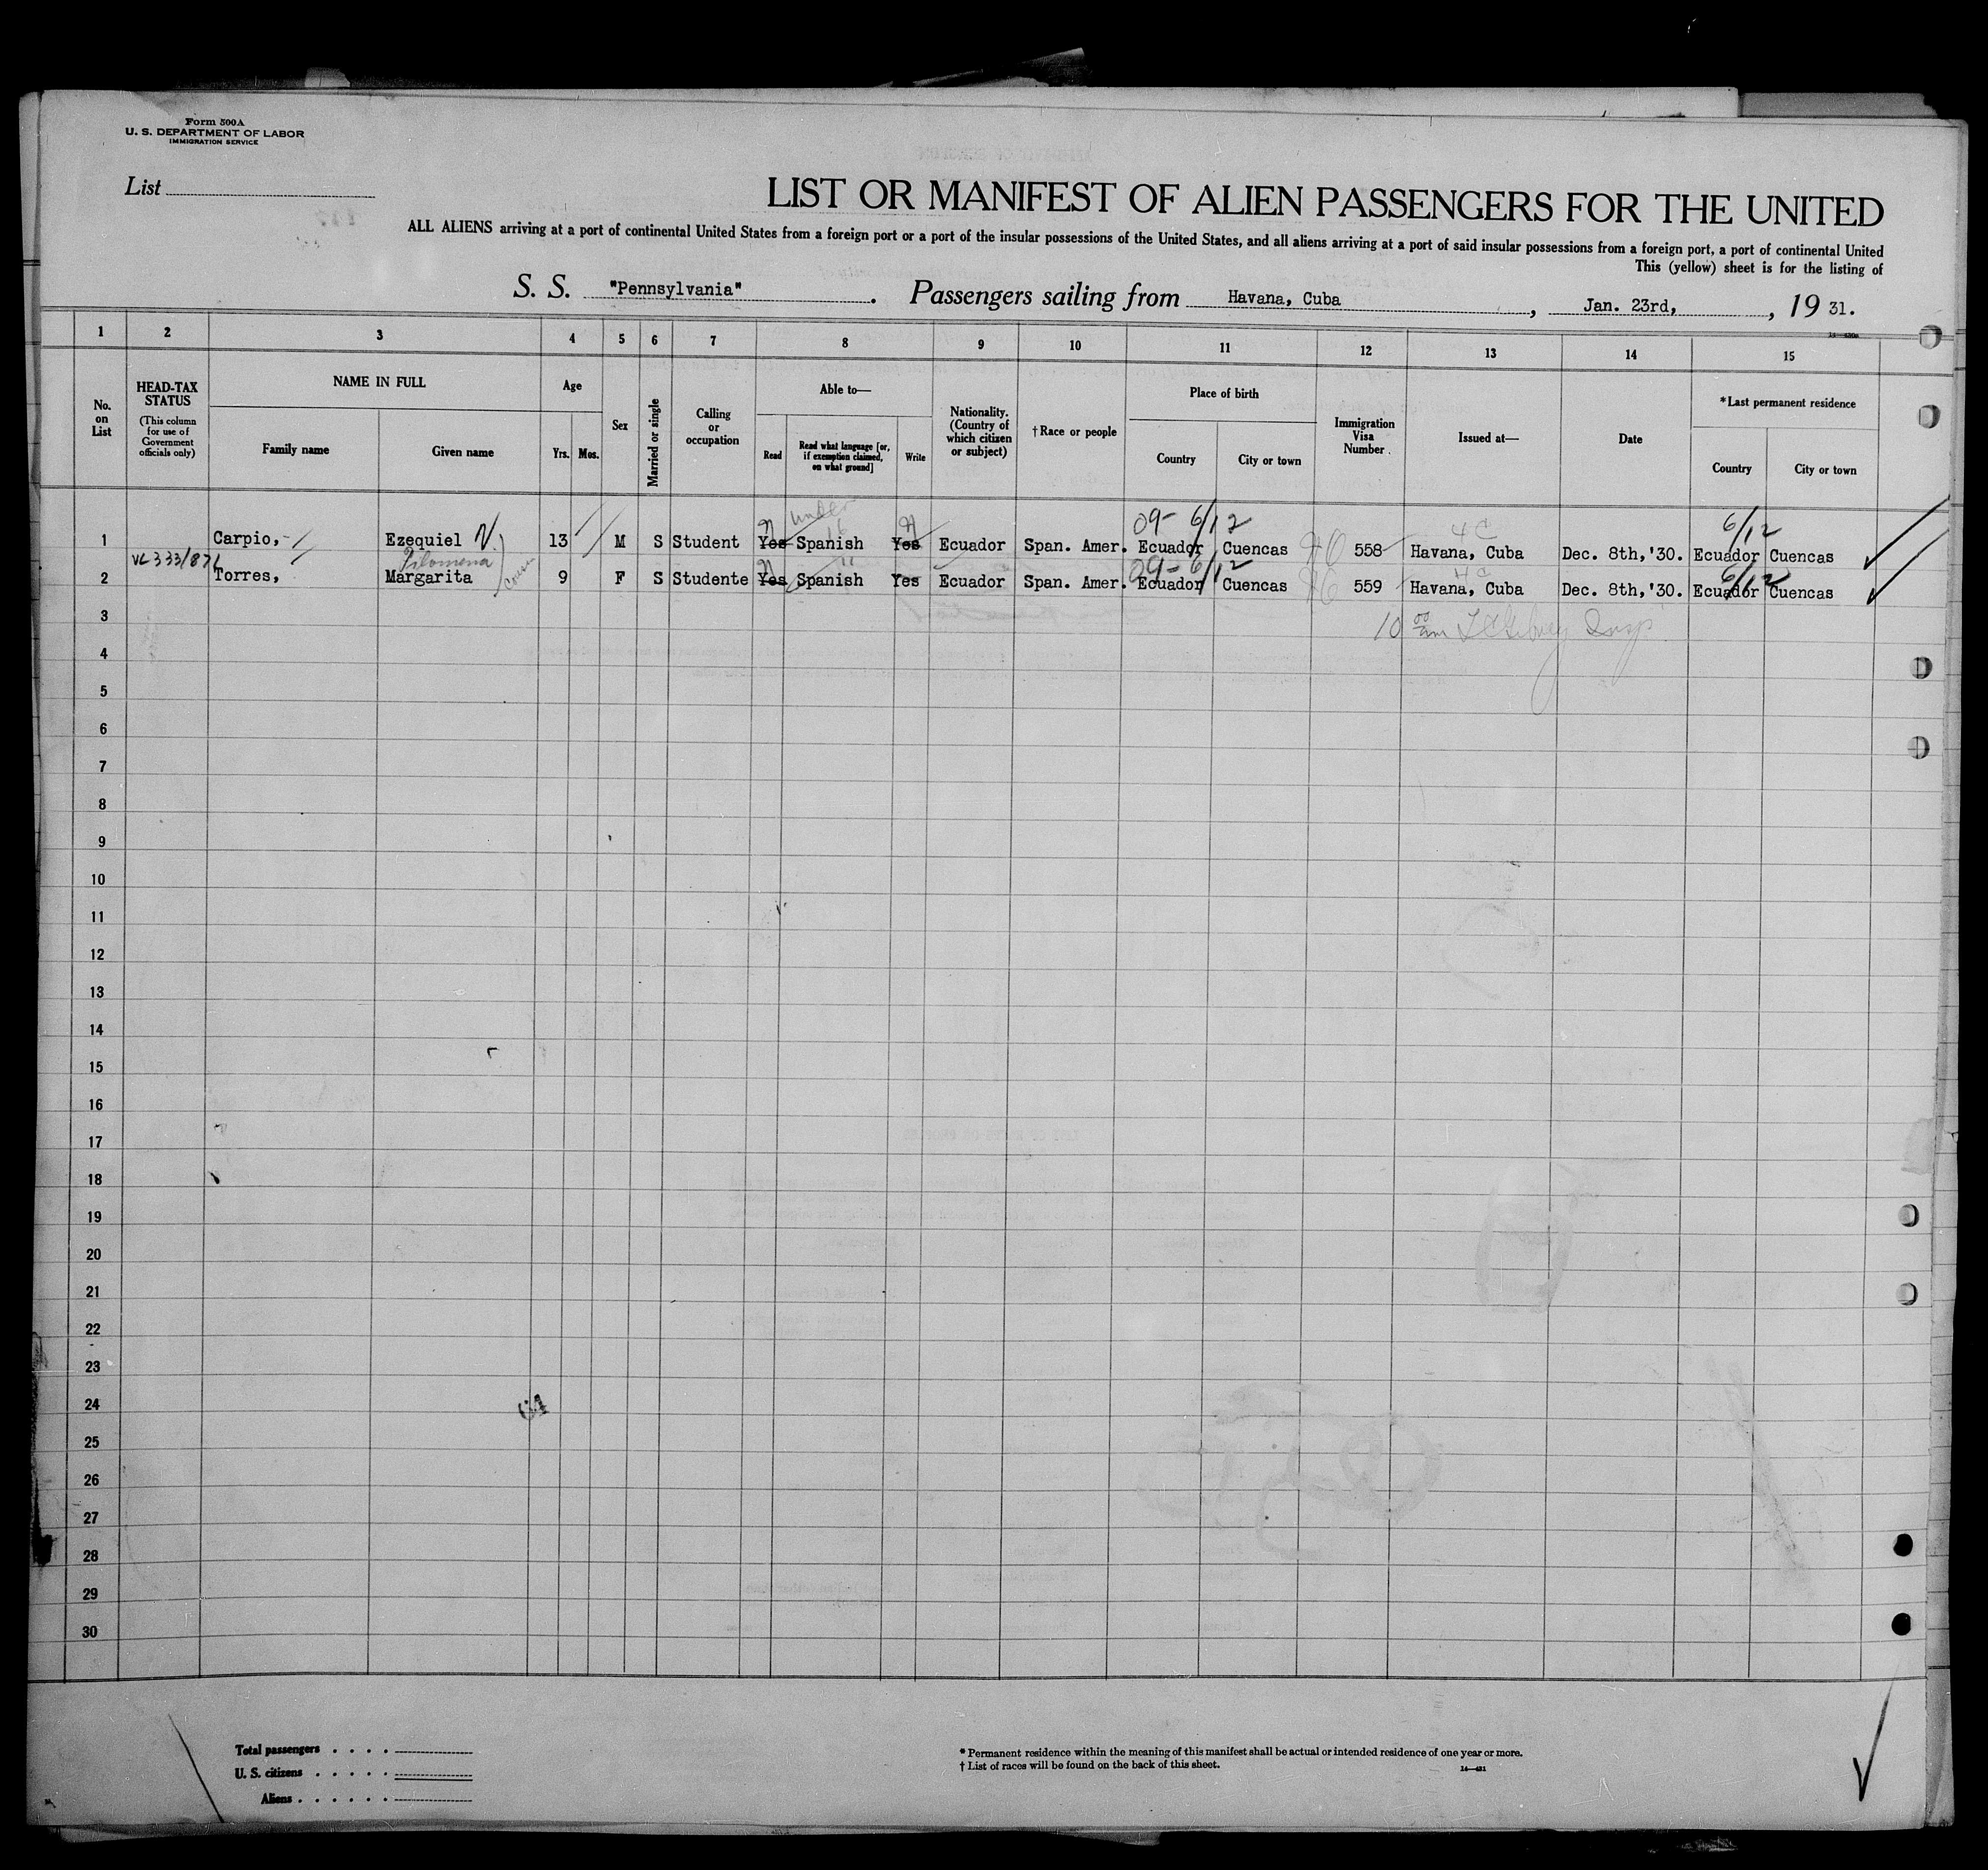 Form 500A
U. S. DEPARTMENT OF LABOR
IMMIGRATION SERVICE
List
LIST OR MANIFEST OF ALIEN PASSENGERS FOR THE UNITED
ALL ALIENS arriving at a port of continental United States from a foreign port or a port of the insular possessions of the United States, and all aliens arriving at a port of said insular possessions from a foreign port, a port of continental United
This (yellow) sheet is for the listing of
S. S. "Pennsylvania". Passengers sailing from Havana, Cuba, Jan. 23rd, , 19 31.
1 2 3 4 5 6 7 8 9 10 11 12 13 14 15
No. on List
HEAD-TAX STATUS
(This column for use of Government officials only)
NAME IN FULL
Family name
Given name
Age
Yrs.
Mos.
Sex
Married or single
Calling or occupation
Able to—
Read
Read what language [or, if exemption claimed, on what ground]
Write
Nationality. (Country of which citizen or subject)
† Race or people
Place of birth
Country
City or town
Immigration Visa Number
Issued at—
Date
*Last permanent residence
Country
City or town
under 16
09- 6/12
4C
6/12
1 Carpio, Ezequiel N. 13 M S Student Yes Spanish Yes Ecuador Span. Amer. Ecuador Cuencas 558 Havana, Cuba Dec. 8th,'30. Ecuador Cuencas
Filomena cousin
09- 6/12
4C
6/12
2 Torres, Margarita 9 F S Studente Yes Spanish Yes Ecuador Span. Amer. Ecuador Cuencas 559 Havana, Cuba Dec. 8th,'30. Ecuador Cuencas
3
10 00 am
4
5
6
7
8
9
10
11
12
13
14
15
16
17
18
19
20
21
22
23
24
25
26
27
28
29
30
Total passengers
U. S. citizens
Aliens
* Permanent residence within the meaning of this manifest shall be actual or intended residence of one year or more.
† List of races will be found on the back of this sheet.